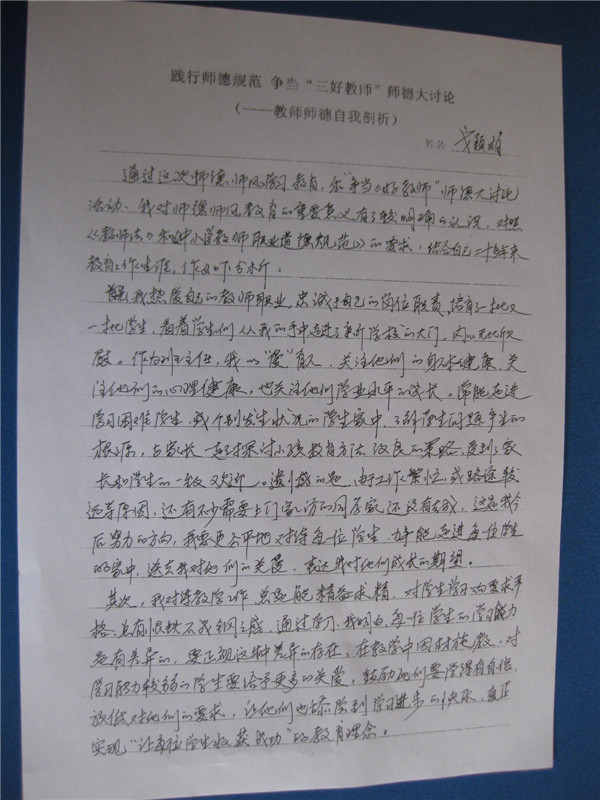 践行师德规范 争当“三好教师”师德大讨论
（——教师师德自我剖析）
姓名
通过这次师德师风学习教育，和“争当三好教师”师德大讨论
活动、我对师德师风教育的重要意义有了较明确的认识，对照
《教师法》和《中小学教师职业道德规范》的要求，结合自己二十多年来
教育工作生涯，作如下分析。
首先，我热爱自己的教师职业，忠诚于自己的岗位职责，培育了一批又
一批学生，看着学生们从我的手中迈进了新学校的大门，内心无比欣
慰。作为班主任，我以“爱”育人，关注他们的身体健康，关
注他们的心理健康，也关注他们学业水平的成长。常能走进
学习困难学生、或个别发生状况的学生家中，了解学生问题产生的
根源，与家长一起探讨小孩教育方法、改良的策略，受到了家
长和学生的一致欢迎。遗憾的是，由于工作繁忙，或路途较
远等原因，还有不少需要上门家访的同学家还没有去成，这是我今
后努力的方向，我要更公平地对待每位学生，力争能走进每位学生
的家中，送去我对他们的关爱、表达我对他们成长的期望。
其次，我对待教学工作总是能精益求精，对学生学习的要求严
格，总有恨铁不成钢之感，通过学习，我明白，每一位学生的学习能力
是有差异的，要正视这种差异的存在，在教学中因材施教，对
学习能力较弱的学生要给予更多的关爱，鼓励他们要学得有自信，
放低对他们的要求，让他们也能尝到学习进步的快乐，真正
实现“让每位学生收获成功”的教育理念。